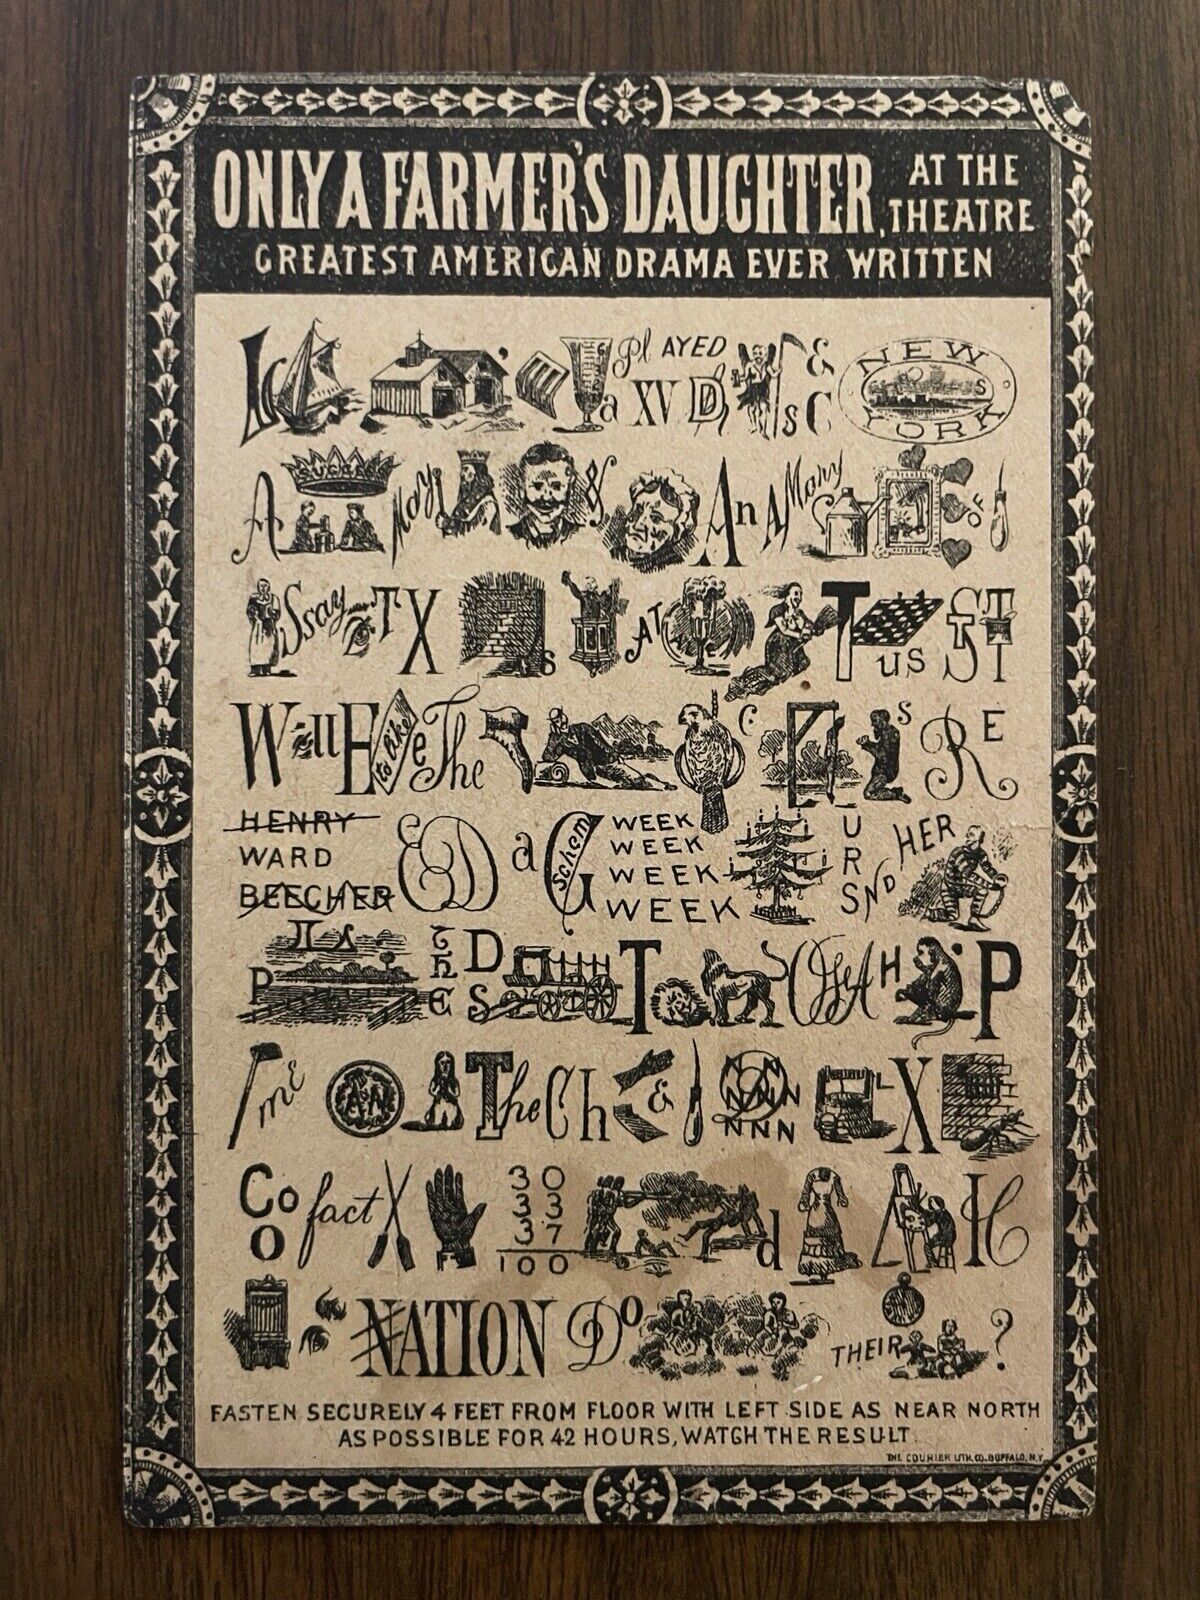 ONLY A FARMER'S DAUGHTER, AT THE THEATRE
GREATEST AMERICAN DRAMA EVER WRITTEN
L C ' a Pl AYED XV D s & C NEW YORK S
A SUCCESS May & An A Mary OF
S say E T X s AT T us ST ST
W ill E to like e The C E L S R E
HENRY WARD BEECHER E D a G Schem WEEK WEEK WEEK WEEK U R S ND HER
P the D S T Off A H ' P
me A N The C h & N N N N N N N N L X
Co O fact 30 33 37 100 d A H
NATION DO THEIR ?
FASTEN SECURELY 4 FEET FROM FLOOR WITH LEFT SIDE AS NEAR NORTH
AS POSSIBLE FOR 42 HOURS, WATCH THE RESULT.
THE COURIER LITH. CO. BUFFALO, N.Y.